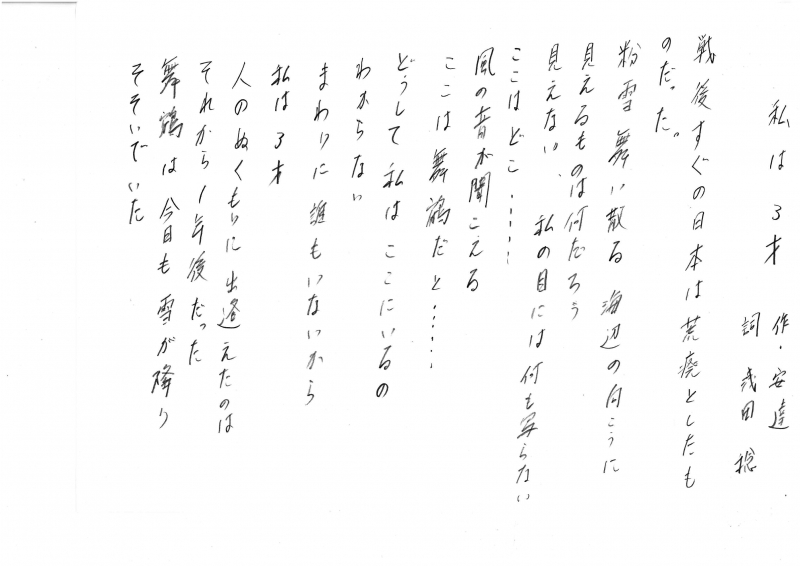 私は３才
作・安達
詞 幾田 稔
戦後すぐの日本は荒廃としたも
のだった。
粉雪舞い散る 海辺の向こうに
見えるものは何だろう
見えない、私の目には何も写らない
ここはどこ……
風の音が聞こえる
ここは舞鶴だと……
どうして私は ここにいるの
わからない
まわりに誰もいないから
私は３才
人のぬくもりに出逢えたのは
それから１年後だった
舞鶴は今日も雪が降り
そそいでいた